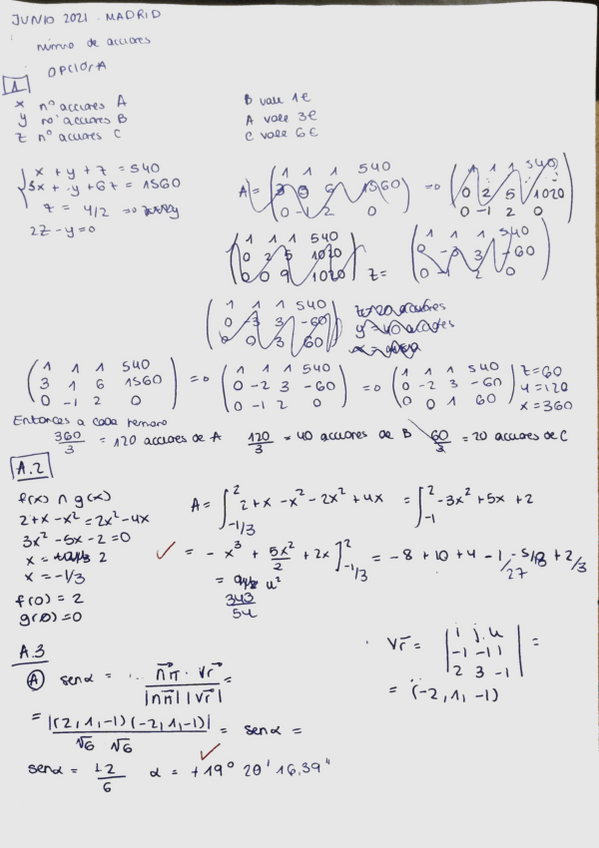 JUNIO 2021 - MADRID
número de acciones
OPCIÓN A
1
x nº acciones A
y nº acciones B
z nº acciones C
B vale 1€
A vale 3€
C vale 6€
x + y + z = 540
3x + y + 6z = 1560
z = y/2 =>
2z - y = 0
A = ( 1 1 1 540
0 -1 2 0 ) => ( 1 1 1 540
0 2 5 1020
0 -1 2 0 )
( 1 1 1 540
0 2 5 1020
0 0 9 1020 ) z = ( 1 1 1 540
0 -2 3 -60
0 -1 2 0 )
( 1 1 1 540
0 -3 3 -60
0 0 3 60 )
( 1 1 1 540
3 1 6 1560
0 -1 2 0 ) => ( 1 1 1 540
0 -2 3 -60
0 -1 2 0 ) => ( 1 1 1 540
0 -2 3 -60
0 0 1 60 ) z=60
y=120
x=360
Entonces a cada hermano
360/3 = 120 acciones de A 120/3 = 40 acciones de B 60/3 = 20 acciones de C
A.2
f(x) ∩ g(x)
2+x-x² = 2x²-4x
3x²-5x-2=0
x = 2
x = -1/3
f(0) = 2
g(0) = 0
A = ∫_{-1/3}^{2} 2+x-x²-2x²+4x = ∫_{-1}^{2} -3x²+5x+2
✓ = -x³ + 5x²/2 + 2x ]_{-1/3}^{2} = -8+10+4-1/27-5/18+2/3
= u²
343/54
A.3
A senα = nπ · vr / |nπ| |vr| =
= |(2,1,-1)(-2,1,-1)| / √6 √6 = senα =
senα = +2/6 α = +19° 28' 16,39"
✓
vr = | i j k
-1 -1 1
2 3 -1 | =
= (-2,1,-1)